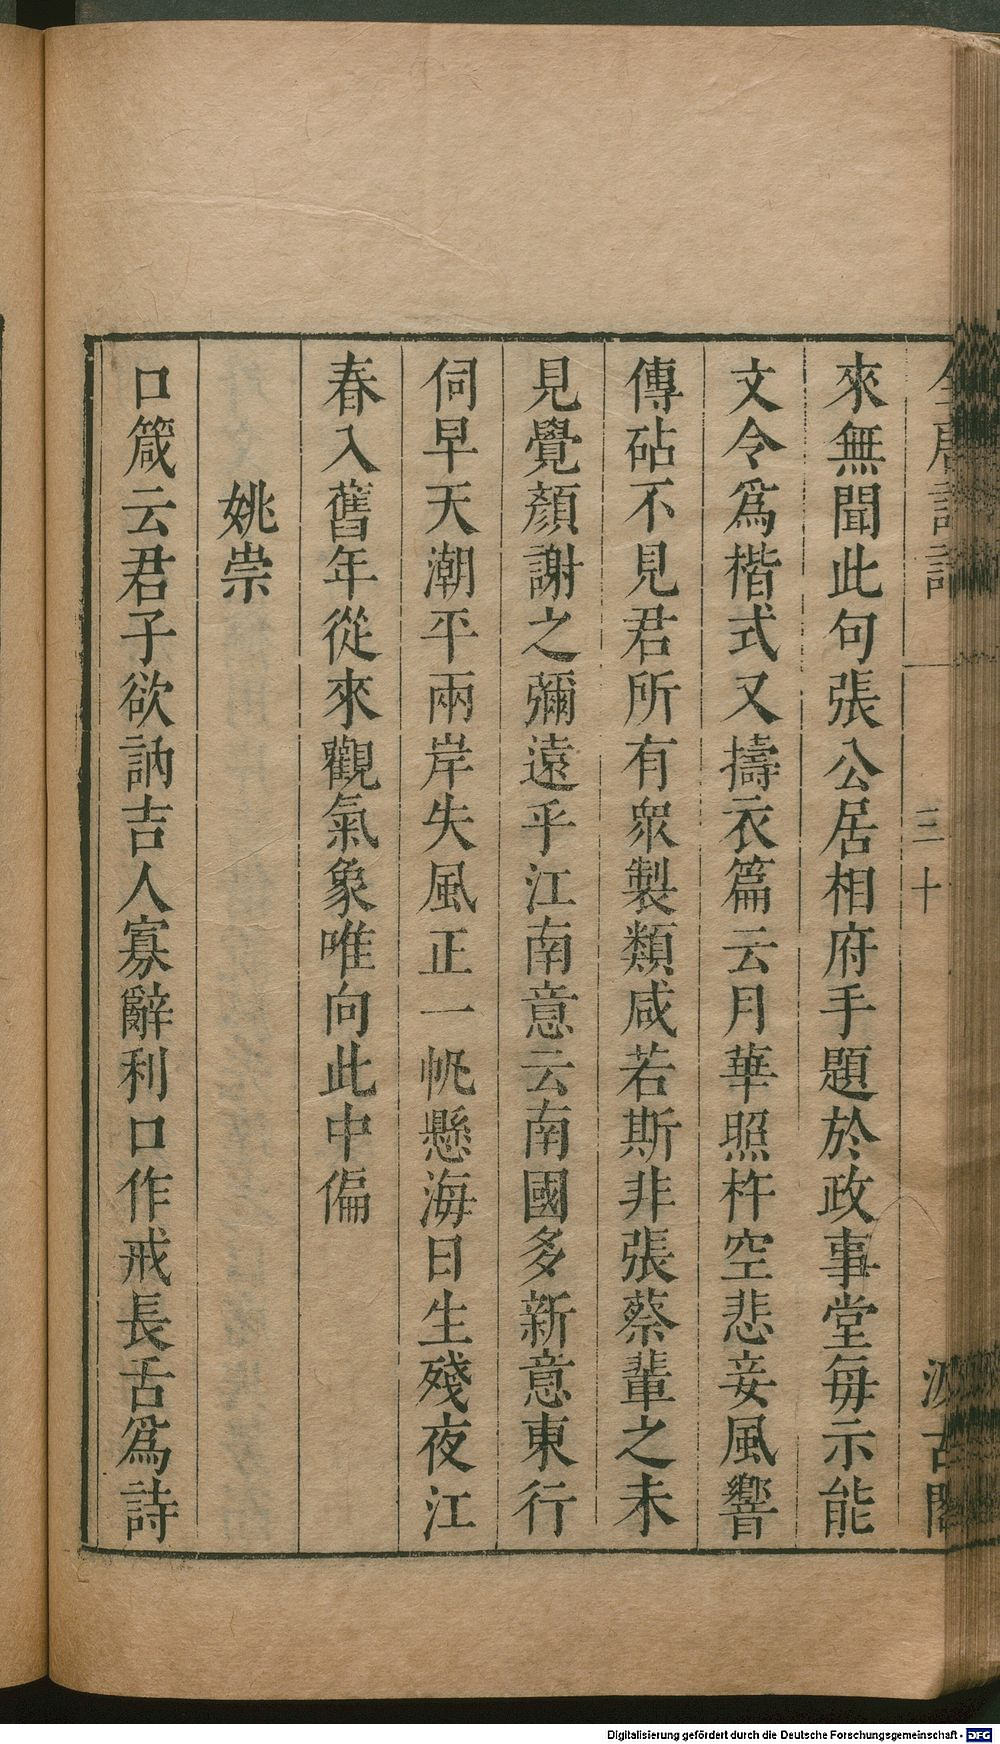 來無聞此句張公居相府手題於政事堂每示能
文令爲楷式又擣衣篇云月華照杵空悲妾風響
傳砧不見君所有眾製類咸若斯非張蔡輩之未
見覺顏謝之彌遠乎江南意云南國多新意東行
伺早天潮平兩岸失風正一帆懸海日生殘夜江
春入舊年從來觀氣象唯向此中偏
姚崇
口箴云君子欲訥吉人寡辭利口作戒長舌爲詩
三十
Digitalisierung gefördert durch die Deutsche Forschungsgemeinschaft - DFG